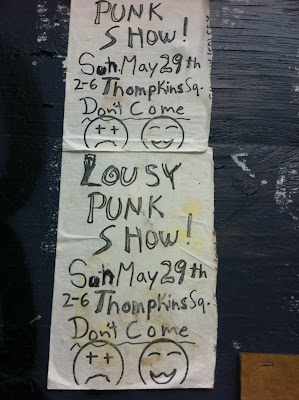 PUNK
SHOW!
Sun. May 29th
2-6 Thompkins Sq.
Don't Come
LOUSY
PUNK
SHOW!
Sun May 29th
2-6 Thompkins Sq.
Don't Come